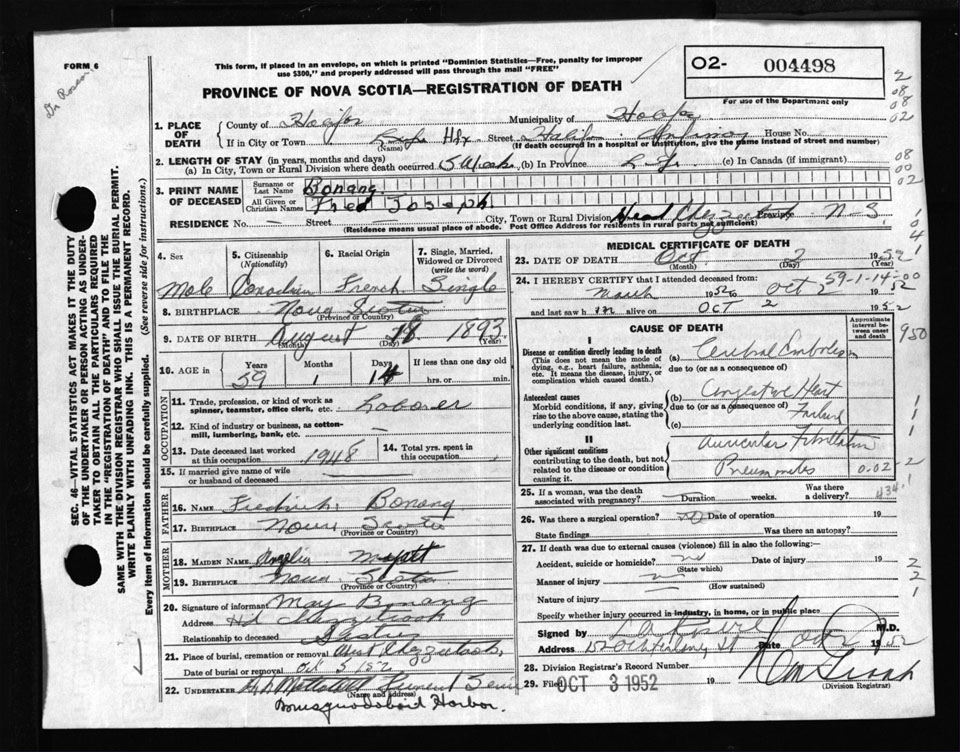 FORM 6
This form, if placed in an envelope, on which is printed "Dominion Statistics—Free, penalty for improper
use $300," and properly addressed will pass through the mail "FREE"
PROVINCE OF NOVA SCOTIA—REGISTRATION OF DEATH
02- 004498
For use of the Department only
1. PLACE OF DEATH
County of Halifax Municipality of Halifax
If in City or Town Hfx Street Halifax Infirmary House No.
(Name) (If death occurred in a hospital or institution, give the name instead of street and number)
2. LENGTH OF STAY (in years, months and days)
(a) In City, Town or Rural Division where death occurred 5 Weeks (b) In Province Life (c) In Canada (if immigrant)
3. PRINT NAME OF DECEASED
Surname or Last Name Bonang
All Given or Christian Names Fred Joseph
RESIDENCE No. — Street City, Town or Rural Division Head Chezzetcook Province N-S.
(Residence means usual place of abode. Post Office Address for residents in rural parts not sufficient)
4. Sex
Male
5. Citizenship
(Nationality)
Canadian
6. Racial Origin
French
7. Single, Married,
Widowed or Divorced
(write the word)
Single
8. BIRTHPLACE Nova Scotia
(Province or Country)
9. DATE OF BIRTH August 18 1893
(Month) (Day) (Year)
10. AGE in
Years Months Days If less than one day old
59 1 14 hrs. or min.
OCCUPATION
11. Trade, profession, or kind of work as
spinner, teamster, office clerk, etc. Laborer
12. Kind of industry or business, as cotton-
mill, lumbering, bank, etc. —
13. Date deceased last worked
at this occupation 1948
14. Total yrs. spent in
this occupation
15. If married give name of wife
or husband of deceased
FATHER
16. Name Fredrick Bonang
17. Birthplace Nova Scotia
(Province or Country)
MOTHER
18. Maiden Name
19. Birthplace Nova Scotia
(Province or Country)
20. Signature of informant May Bonang
Address Hd Chezzetcook
Relationship to deceased Sister
21. Place of burial, cremation or removal West Chezzetcook
Date of burial or removal Oct 5 1952
22. UNDERTAKER
(Name and address)
Musquodoboit Harbor.
MEDICAL CERTIFICATE OF DEATH
23. DATE OF DEATH Oct 2 1952
(Month) (Day) (Year)
24. I HEREBY CERTIFY that I attended deceased from:
59-1-14-00
March 1952 to Oct 2 1952
and last saw h im alive on Oct 2 1952
CAUSE OF DEATH
Approximate interval between onset and death
I
Disease or condition directly leading to death
(This does not mean the mode of
dying, e.g., heart failure, asthenia,
etc. It means the disease, injury, or
complication which caused death.)
(a) Cerebral Embolism
due to (or as a consequence of)
Antecedent causes
Morbid conditions, if any, giving
rise to the above cause, stating the
underlying condition last.
(b) Congestive Heart
due to (or as a consequence of)
Failure
(c)
II
Other significant conditions
contributing to the death, but not
related to the disease or condition
causing it.
Auricular Fibrillation
0.02-2
434.1
25. If a woman, was the death
associated with pregnancy? — Duration weeks. Was there
a delivery?
26. Was there a surgical operation? no Date of operation 19
State findings Was there an autopsy?
27. If death was due to external causes (violence) fill in also the following:—
Accident, suicide or homicide? no Date of injury 19
(State which)
Manner of injury —
(How sustained)
Nature of injury
Specify whether injury occurred in industry, in home, or in public place
Signed by M.D.
Address Date Oct 2 1952
28. Division Registrar's Record Number
29. Filed OCT 3 1952 19
(Division Registrar)
SEC. 46—VITAL STATISTICS ACT MAKES IT THE DUTY
OF THE UNDERTAKER OR PERSON ACTING AS UNDER-
TAKER TO OBTAIN ALL THE PARTICULARS REQUIRED
IN THE "REGISTRATION OF DEATH" AND TO FILE THE
SAME WITH THE DIVISION REGISTRAR WHO SHALL ISSUE THE BURIAL PERMIT.
WRITE PLAINLY WITH UNFADING INK. THIS IS A PERMANENT RECORD.
Every item of information should be carefully supplied. (See reverse side for instructions.)
2
08
08
02
08
00
02
1
4
1
950
1
1
1
2
2
1